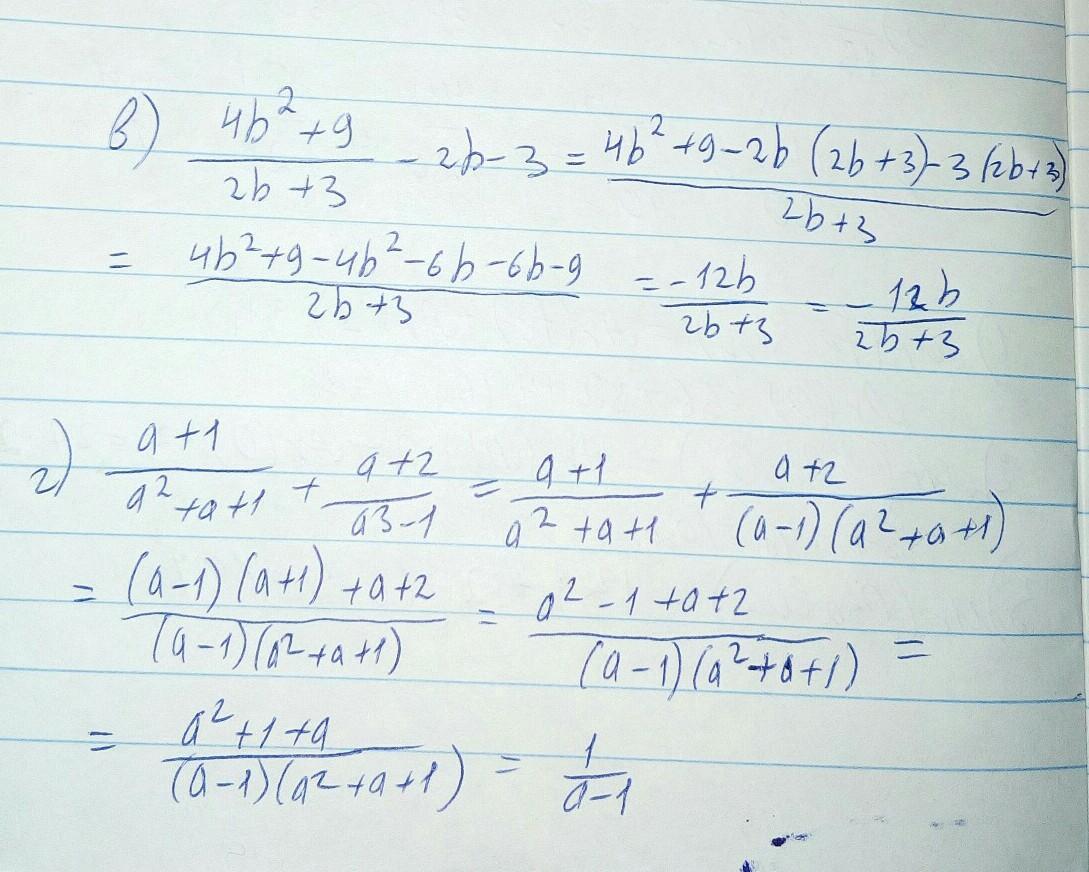 в) (4b²+9)/(2b+3) - 2b-3 = (4b²+9-2b(2b+3)-3(2b+3))/(2b+3)
= (4b²+9-4b²-6b-6b-9)/(2b+3) = (-12b)/(2b+3) = -12b/(2b+3)
г) (a+1)/(a²+a+1) + (a+2)/(a3-1) = (a+1)/(a²+a+1) + (a+2)/((a-1)(a²+a+1))
= ((a-1)(a+1)+a+2)/((a-1)(a²+a+1)) = (a²-1+a+2)/((a-1)(a²+a+1)) =
= (a²+1+a)/((a-1)(a²+a+1)) = 1/(a-1)